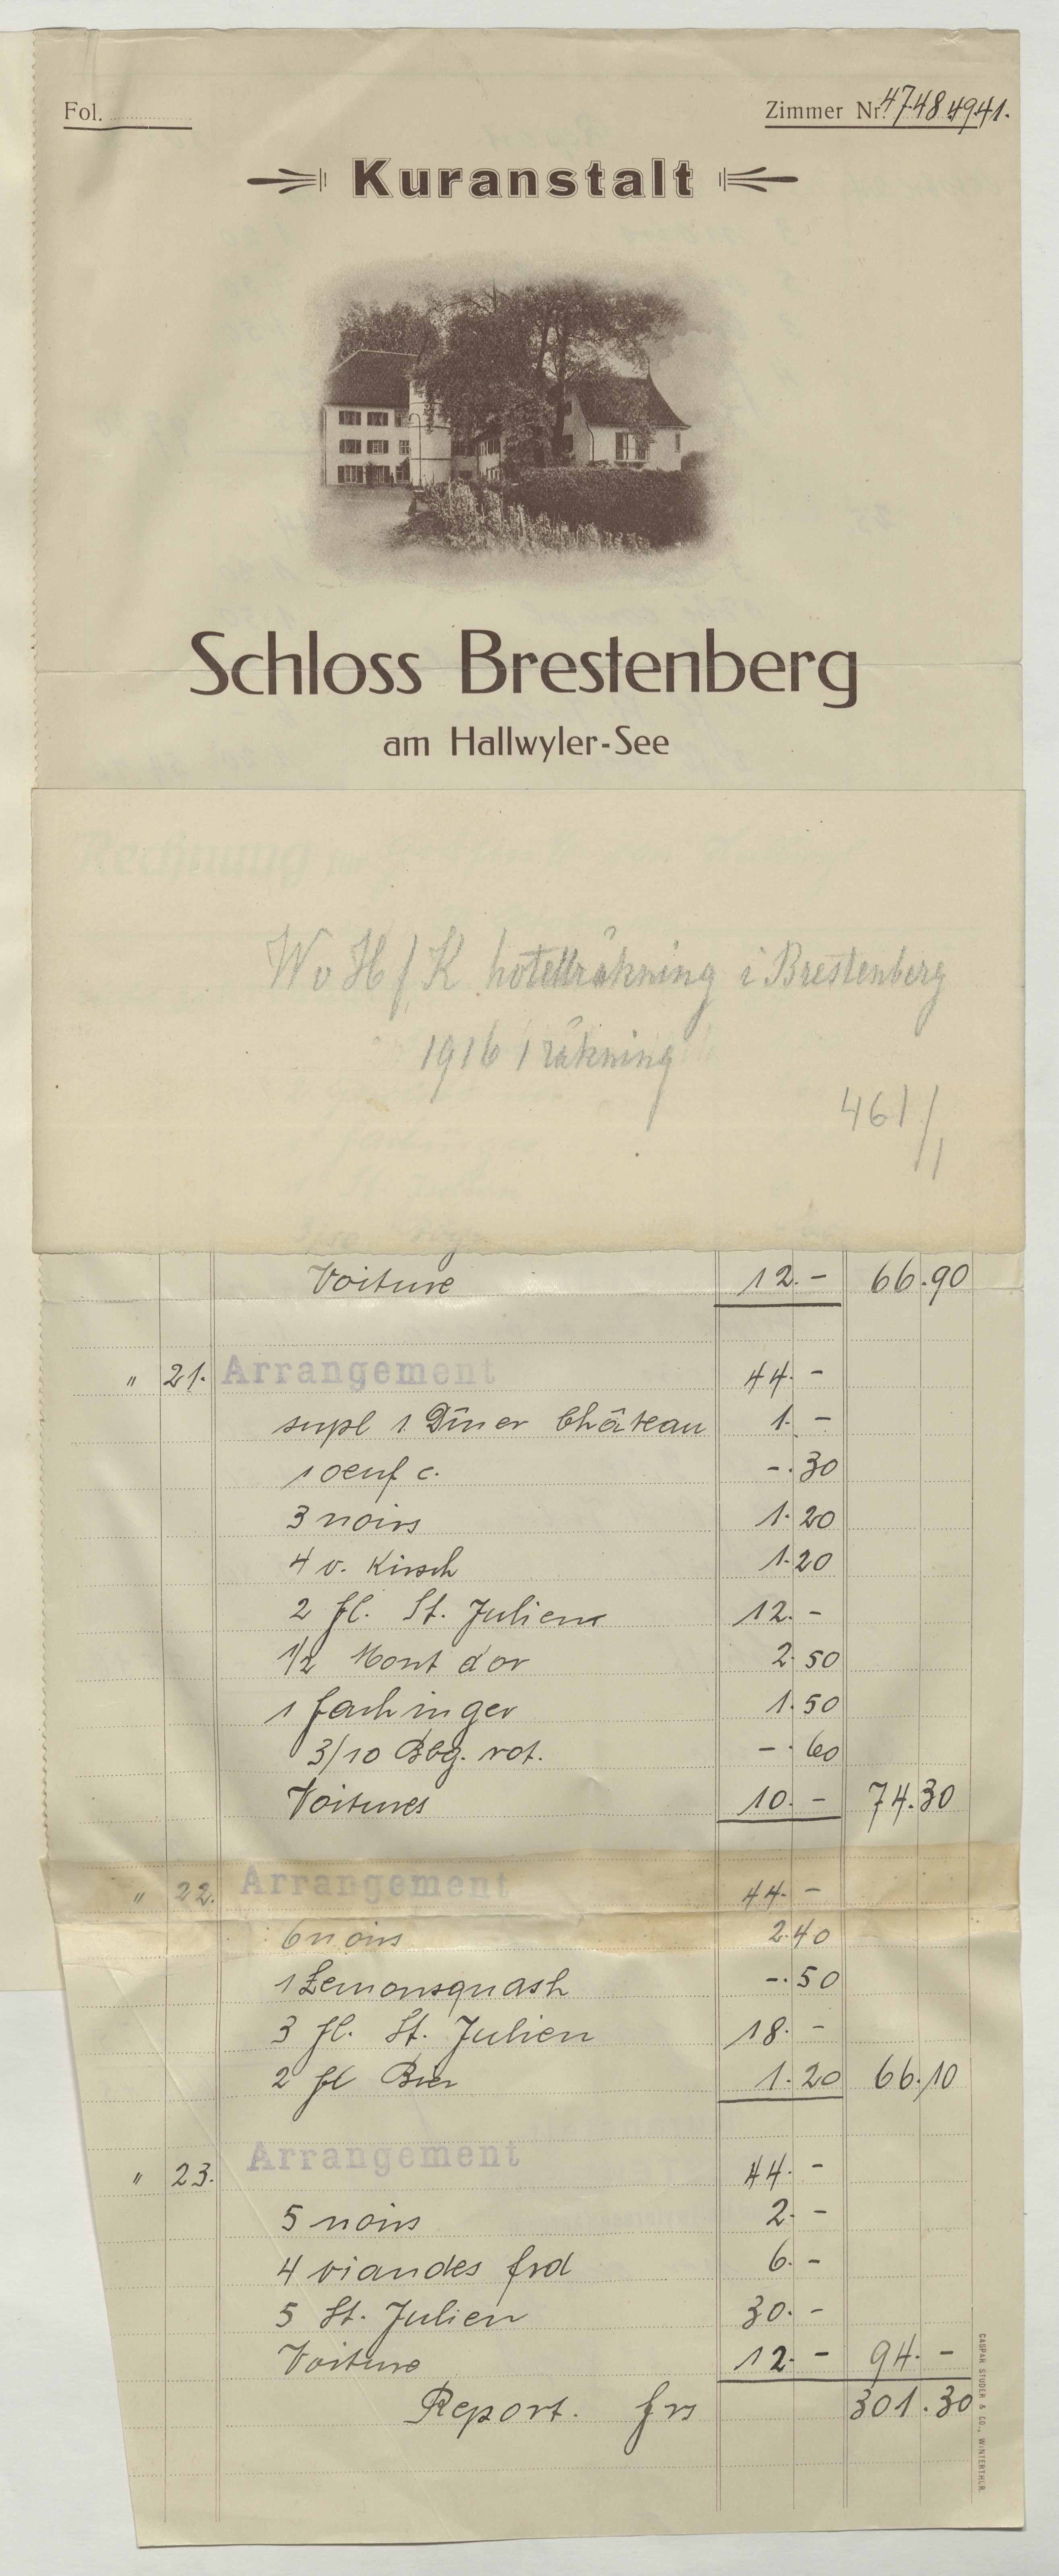 Fol.
Zimmer Nr. 47.48 49.41.
Kuranstalt
Schloss Brestenberg
am Hallwyler-See
W v H / K hotellräkning i Brestenberg
1916 1 räkning
461/1
Voiture 12.- 66.90
" 21. Arrangement 44.-
supl 1 Dîner Château 1.-
1 oeuf c. -.30
3 noirs 1.20
4 v. Kirsch 1.20
2 fl. St. Julien 12.-
1/2 Mont d'or 2.50
1 fachinger 1.50
3/10 Bbg. rot. -.60
Voitures 10.- 74.30
" 22. Arrangement 44.-
6 noirs 2.40
1 Lemonsquash -.50
3 fl. St. Julien 18.-
2 fl Bier 1.20 66.10
" 23. Arrangement 44.-
5 noirs 2.-
4 viandes frd 6.-
5 St. Julien 30.-
Voiture 12.- 94.-
Report. frs 301.30
CASPAR STUDER & CO., WINTERTHUR.